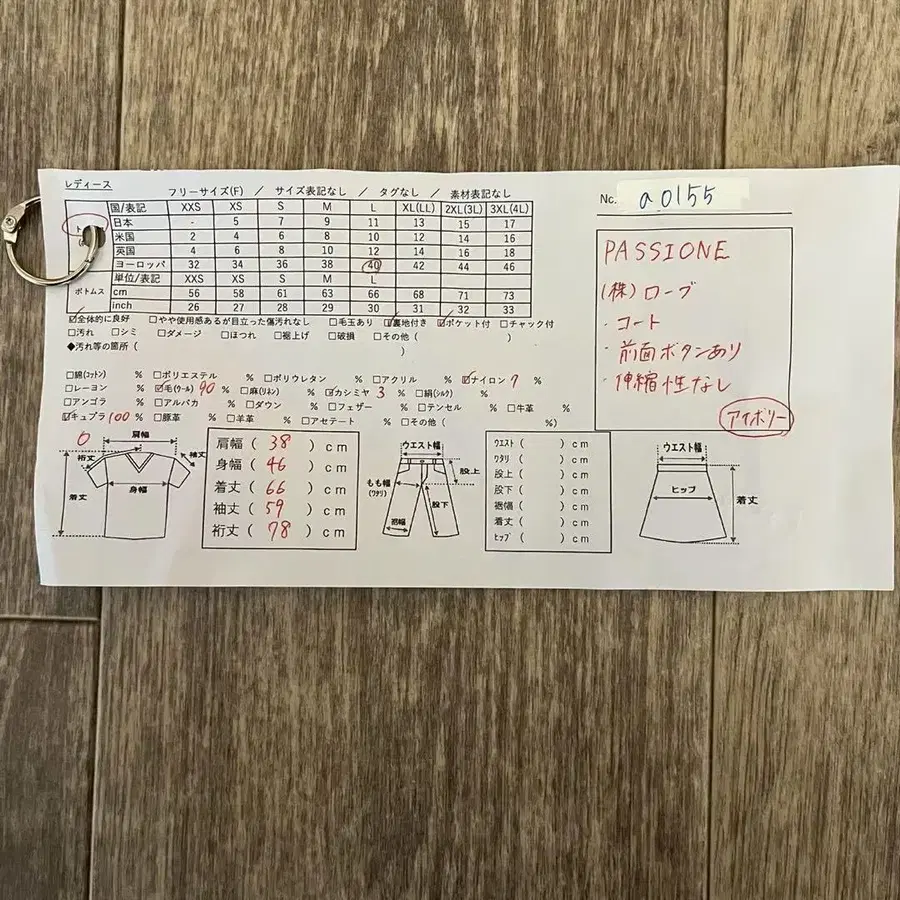 レディース
フリーサイズ(F) / サイズ表記なし / タグなし / 素材表記なし
国/表記 XXS XS S M L XL(LL) 2XL(3L) 3XL(4L)
日本 - 5 7 9 11 13 15 17
米国 2 4 6 8 10 12 14 16
英国 4 6 8 10 12 14 16 18
ヨーロッパ 32 34 36 38 40 42 44 46
ボトムス
単位/表記 XXS XS S M L
cm 56 58 61 63 66 68 71 73
inch 26 27 28 29 30 31 32 33
☑全体的に良好 □やや使用感あるが目立った傷汚れなし □毛玉あり ☑裏地付き ☑ポケット付 □チャック付
□汚れ □シミ □ダメージ □ほつれ □裾上げ □破損 □その他( )
◆汚れ等の箇所( )
□綿(コットン) % □ポリエステル % □ポリウレタン % □アクリル % ☑ナイロン 7 %
□レーヨン % ☑毛(ウール) 90 % □麻(リネン) % ☑カシミヤ 3 % □絹(シルク) %
□アンゴラ % □アルパカ % □ダウン % □フェザー % □テンセル % □牛革 %
☑キュプラ 100 % □豚革 % □羊革 % □アセテート % □その他( %)
肩幅
裄丈
袖丈
身幅
着丈
肩幅 ( 38 ) cm
身幅 ( 46 ) cm
着丈 ( 66 ) cm
袖丈 ( 59 ) cm
裄丈 ( 78 ) cm
ウエスト幅
股上
もも幅
(ワタリ)
股下
裾幅
ウエスト ( ) cm
ワタリ ( ) cm
股上 ( ) cm
股下 ( ) cm
裾幅 ( ) cm
着丈 ( ) cm
ヒップ ( ) cm
ウエスト幅
ヒップ
着丈
No. a0155
PASSIONE
(株)ローブ
・コート
・前面ボタンあり
・伸縮性なし
アイボリー